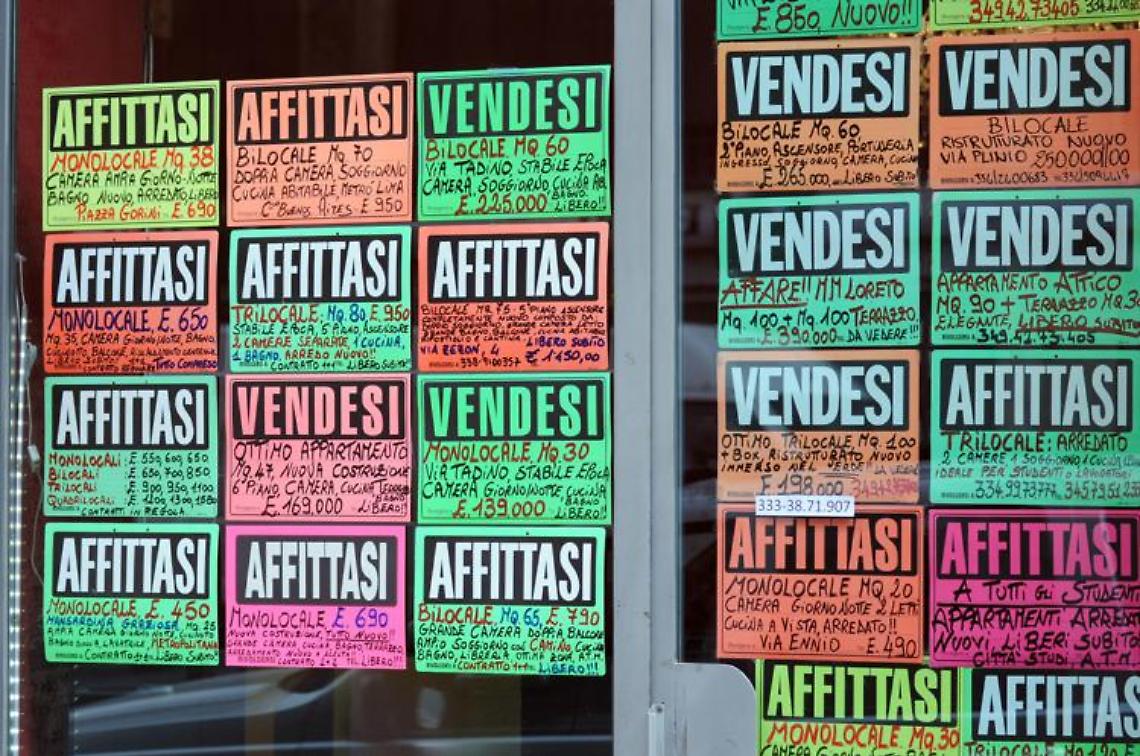 AFFITTASI
MONOLOCALE MQ. 38
CAMERA AMPIA GIORNO-NOTTE
BAGNO NUOVO, ARREDATO, LIBERO
PIAZZA GORINI - E. 690
AFFITTASI
BILOCALE MQ 70
DOPPIA CAMERA, SOGGIORNO
CUCINA ABITABILE METRO' LIMA
C.so BUENOS AIRES - E 950
VENDESI
BILOCALE MQ 60
VIA TADINO, STABILE EPOCA
CAMERA, SOGGIORNO, CUCINA AB.
BAGNO.
E. 225.000 LIBERO!!
AFFITTASI
MONOLOCALE, E. 650
MQ. 35, CAMERA GIORNO/NOTTE, BAGNO,
CUCINOTTO BALCONE, RISCALDAMENTO CENTRALE
TUTTO COMPRESO
AFFITTASI
TRILOCALE: MQ. 80, E. 950
STABILE EPOCA, 5° PIANO, ASCENSORE
2 CAMERE SEPARATE, 1 CUCINA,
1 BAGNO, ARREDO NUOVO!!
CONTRATTO LIBERO SUBITO
AFFITTASI
BILOCALE MQ. 75. 5° PIANO ASCENSORE
LIBERO SUBITO
VIA 4
E 1150,00
AFFITTASI
MONOLOCALI : E 550, 600, 650
BILOCALI : E 680, 700, 850
TRILOCALI : E 900, 950, 1100
QUADRILOCALI : E 1200 1300,
CONTRATTI IN REGOLA
VENDESI
OTTIMO APPARTAMENTO
MQ. 47, NUOVA COSTRUZIONE
6° PIANO, CAMERA, CUCINA
BAGNO
E. 169,000 LIBERO!!
VENDESI
MONOLOCALE, MQ. 30
VIA TADINO, STABILE EPOCA
CAMERA GIORNO/NOTTE, CUCINA
BAGNO
E. 139.000 LIBERO!!
AFFITTASI
MONOLOCALE, E. 450
MANSARDINA GRAZIOSA, MQ. 25
AMPIA CAMERA GIORNO, NOTTE, CUCINOTTO
BAGNO, LAVATRICE, METROPOLITANA
CONTRATTO LIBERO SUBITO
AFFITTASI
MONOLOCALE, E 690
NUOVA COSTRUZIONE, TUTTO NUOVO!!
GRANDE CAMERA, CUCINA, BAGNO, TERRAZZO,
CONTRATTO LIBERO!!
AFFITTASI
BILOCALE, MQ 65, E. 790
GRANDE CAMERA DOPPIA BALCONE
AMPIO SOGGIORNO CON CAMINO, CUCINA
BAGNO, LIBRERIA, OTTIMA ZONA, A.T.M.
CONTRATTO LIBERO!!!
E. 850, NUOVO!!
349.42.73405
VENDESI
BILOCALE MQ. 60
2° PIANO, ASCENSORE, PORTINERIA
INGRESSO, SOGGIORNO, CAMERA, CUCINA
E. 265.000, LIBERO SUBITO
VENDESI
BILOCALE
RISTRUTTURATO NUOVO
VIA PLINIO 250.000,00
VENDESI
AFFARE!! MM LORETO
MQ. 100 + MQ. 100 TERRAZZO,
E. 390.000 DA VEDERE!!!
VENDESI
APPARTAMENTO ATTICO
MQ. 90 + TERRAZZO MQ. 30
ELEGANTE, LIBERO SUBITO
349.42.73.405
VENDESI
OTTIMO TRILOCALE, MQ. 100
+ BOX, RISTRUTTURATO NUOVO
IMMERSO NEL VERDE!!
E. 198.000
333-38.71.907
AFFITTASI
TRILOCALE: ARREDATO
2 CAMERE 1 SOGGIORNO 1 CUCINA
IDEALE PER STUDENTI O LAVORATORI
AFFITTASI
MONOLOCALE MQ. 20
CAMERA GIORNO NOTTE 2 LETTI
CUCINA A VISTA, ARREDATO!!
VIA ENNIO E. 490
AFFITTASI
A TUTTI GLI STUDENTI
APPARTAMENTI ARREDATI
NUOVI, LIBERI SUBITO
CITTA' STUDI A.T.M.
AFFITTASI
MONOLOCALE MQ 30
AFFITTAS